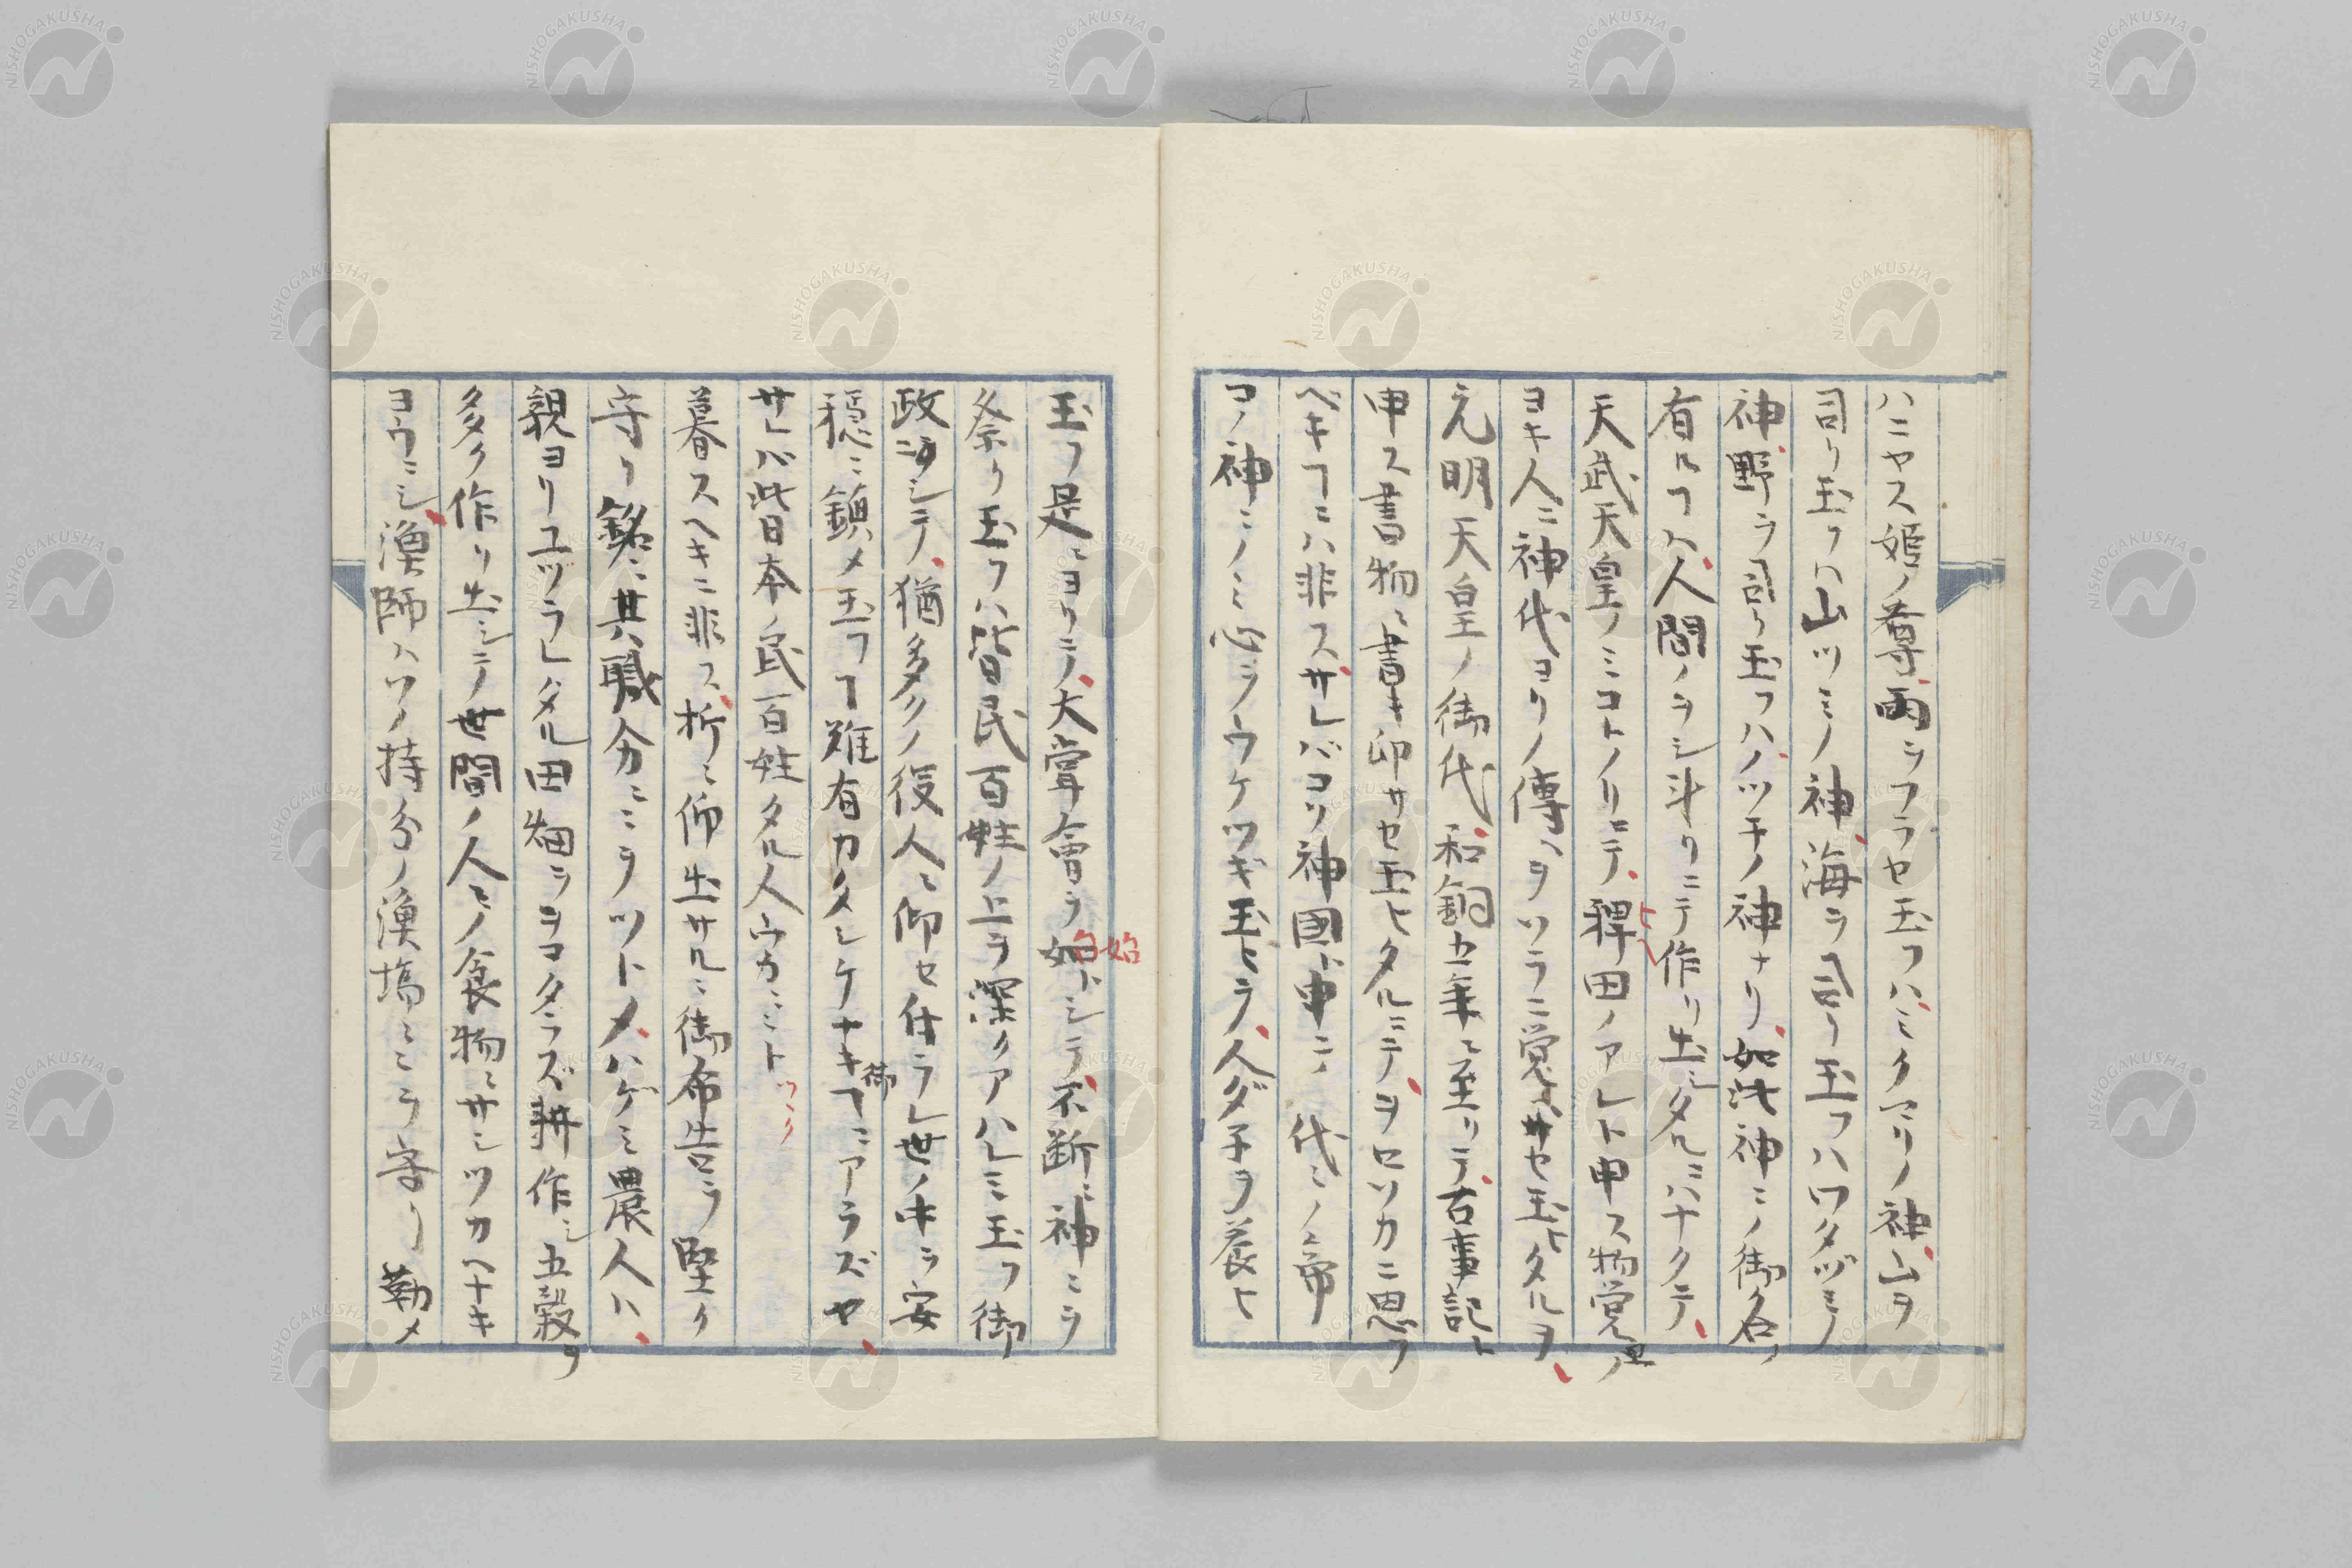 ハニヤス姫ノ尊、雨ヲフラセ玉フハ、ミクマリノ神、山ヲ
司リ玉フハ山ツミノ神、海ヲ司リ玉フハワタヅミノ
神、野ヲ司リ玉フハ、ノツチノ神ナリ、如此神ミノ御名ノ
有ルヿハ、人間ノヲシ斗リニテ作リ出シタルニハナクテ、
天武天皇ノミコトノリニテ、稗田ノアレト申ス物覚ノ
ヨキ人ニ神代ヨリノ傳ヘヲツラニ覚ヘサセ玉ヒタルヲ、
元明天皇ノ御代、和銅五年ニ至リテ、古事記ト
申ス書物ニ書キ印サセ玉ヒタルニテ、ヲロソカニ思フ
ベキヿニハ非ス、サレバコソ神國ト申ニ代ミノ帝
コノ神ミノミ心ヲウケツギ玉ヒテ、人ダネヲ養ヒ
玉フ是ニヨリテ、大嘗會ヲ始トシテ、不断ニ神ミヲ
祭リ玉フハ皆民百姓ノ上ヲ深クアハレミ玉フ御
政ヿニシテ、猶多クノ役人ニ仰セ付ラレ世ノ中ヲ安
穏ニ鎮メ玉フヿ難有カタシケナキ御ヿニアラズヤ、
サレバ此日本ノ民百姓タル人ウカミト
暮スヘキニ非ス、折ミ仰出サルヽ御布告ヲ堅ク
守リ銘ミ其職分ミヽヲツトメ、ハゲミ農人ハ、
親ヨリユヅラレタル田畑ヲヲコタラズ耕作シ五穀ヲ
多ク作リ出シテ世間ノ人ミノ食物ニサシツカヘナキ
ヨウニシ、漁師ハソノ持分ノ漁場ミヽヲ守リ勤メ
NISHOGAKUSHA